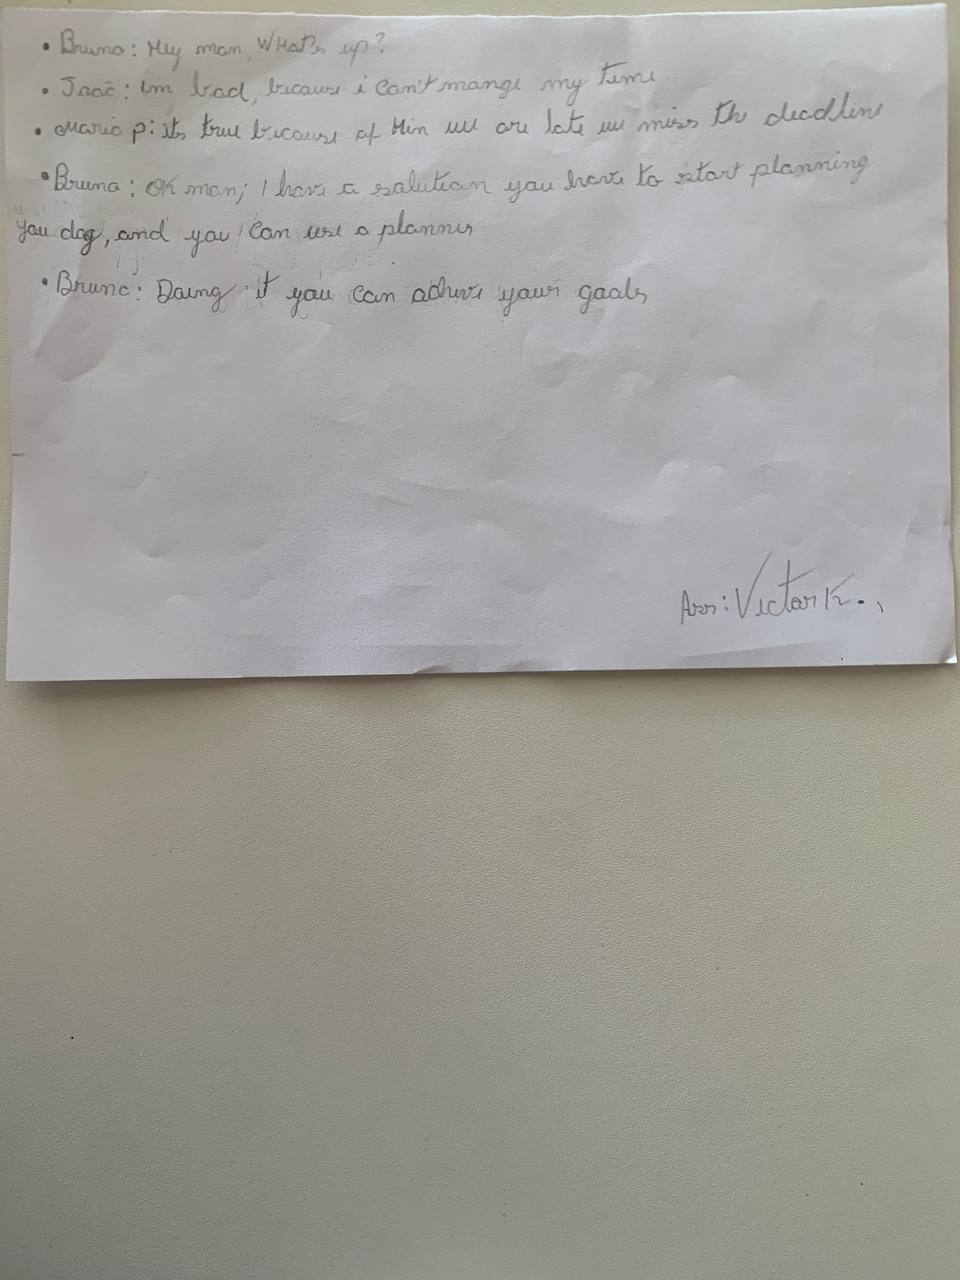 • Bruno: My man, What's up?
• Joãc: im bad, because i can't mange my time
• Mario p: its true because of Him we are late we miss the deadline
• Bruno: Ok man; I have a solution you have to start planning
you day, and you can use a planner
• Bruno: Doing it you can achive your goals
Ass: Victor K.